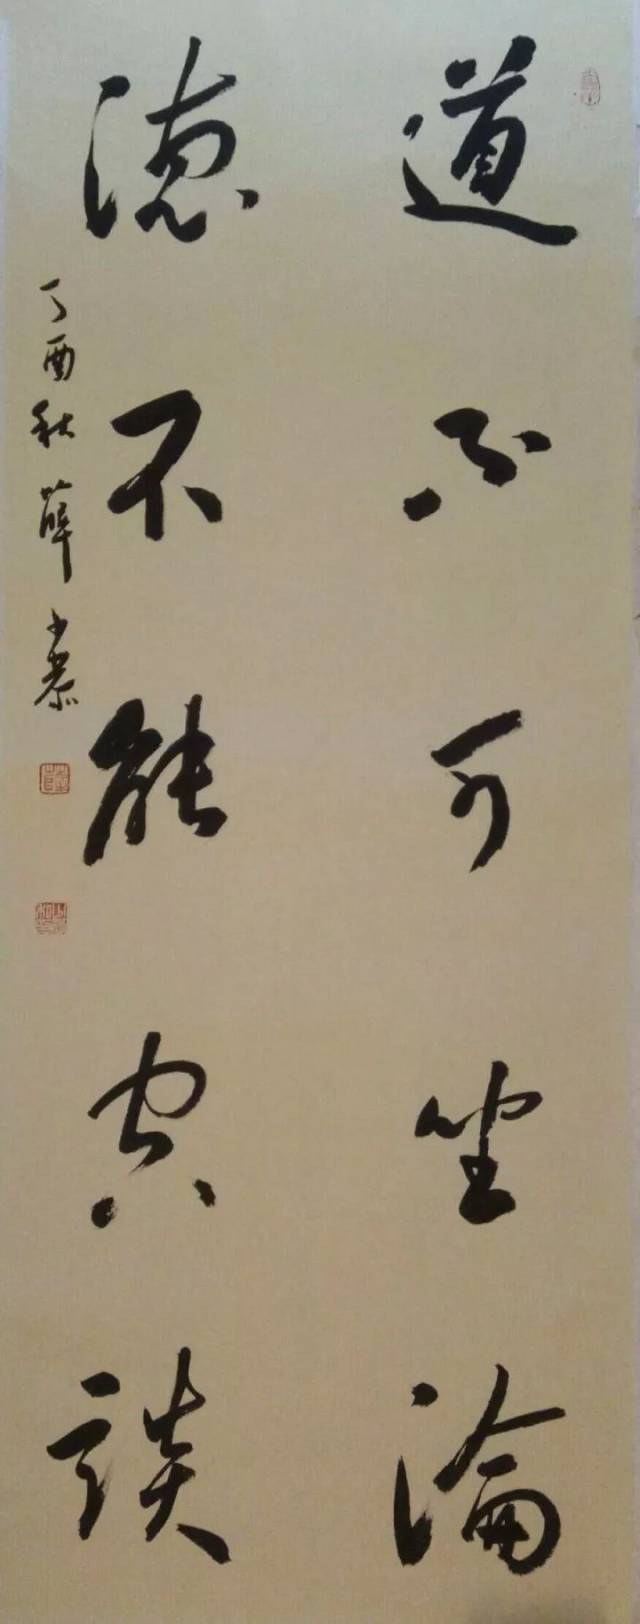 道不可坐論
德不能空談
丁酉秋薛少恭